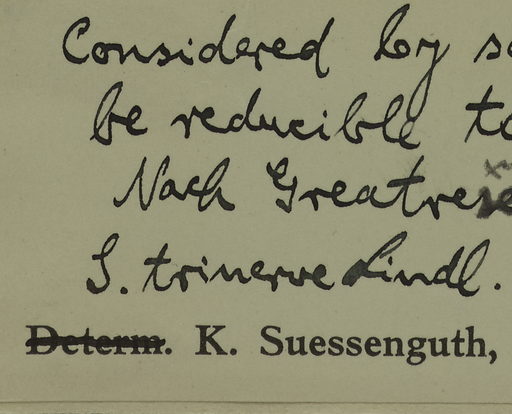 Considered by
be reducible to
Nach Greatrex
S. trinerve Lindl.
Determ. K. Suessenguth,